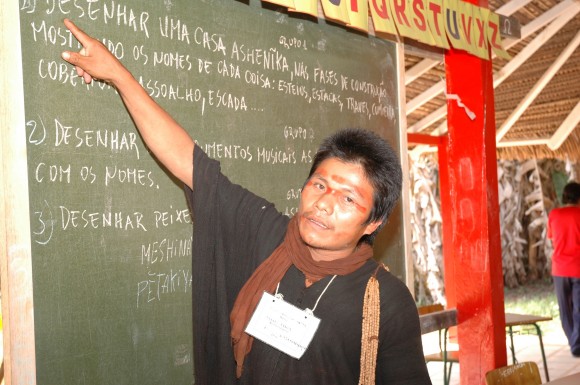 1) DESENHAR UMA CASA ASHENĨKA, NAS FASES DE CONSTRUÇÃO
GRUPO 1
MOSTRANDO OS NOMES DE CADA COISA: ESTEIOS, ESTACAS, TRAVES, CUMEEIRA,
ASSOALHO, ESCADA ....
GRUPO
2) DESENHAR MUSICAIS
COM OS NOMES.
3) DESENHAR PEIXE
MESHINA
PETAKIYA
RSTUVXZ